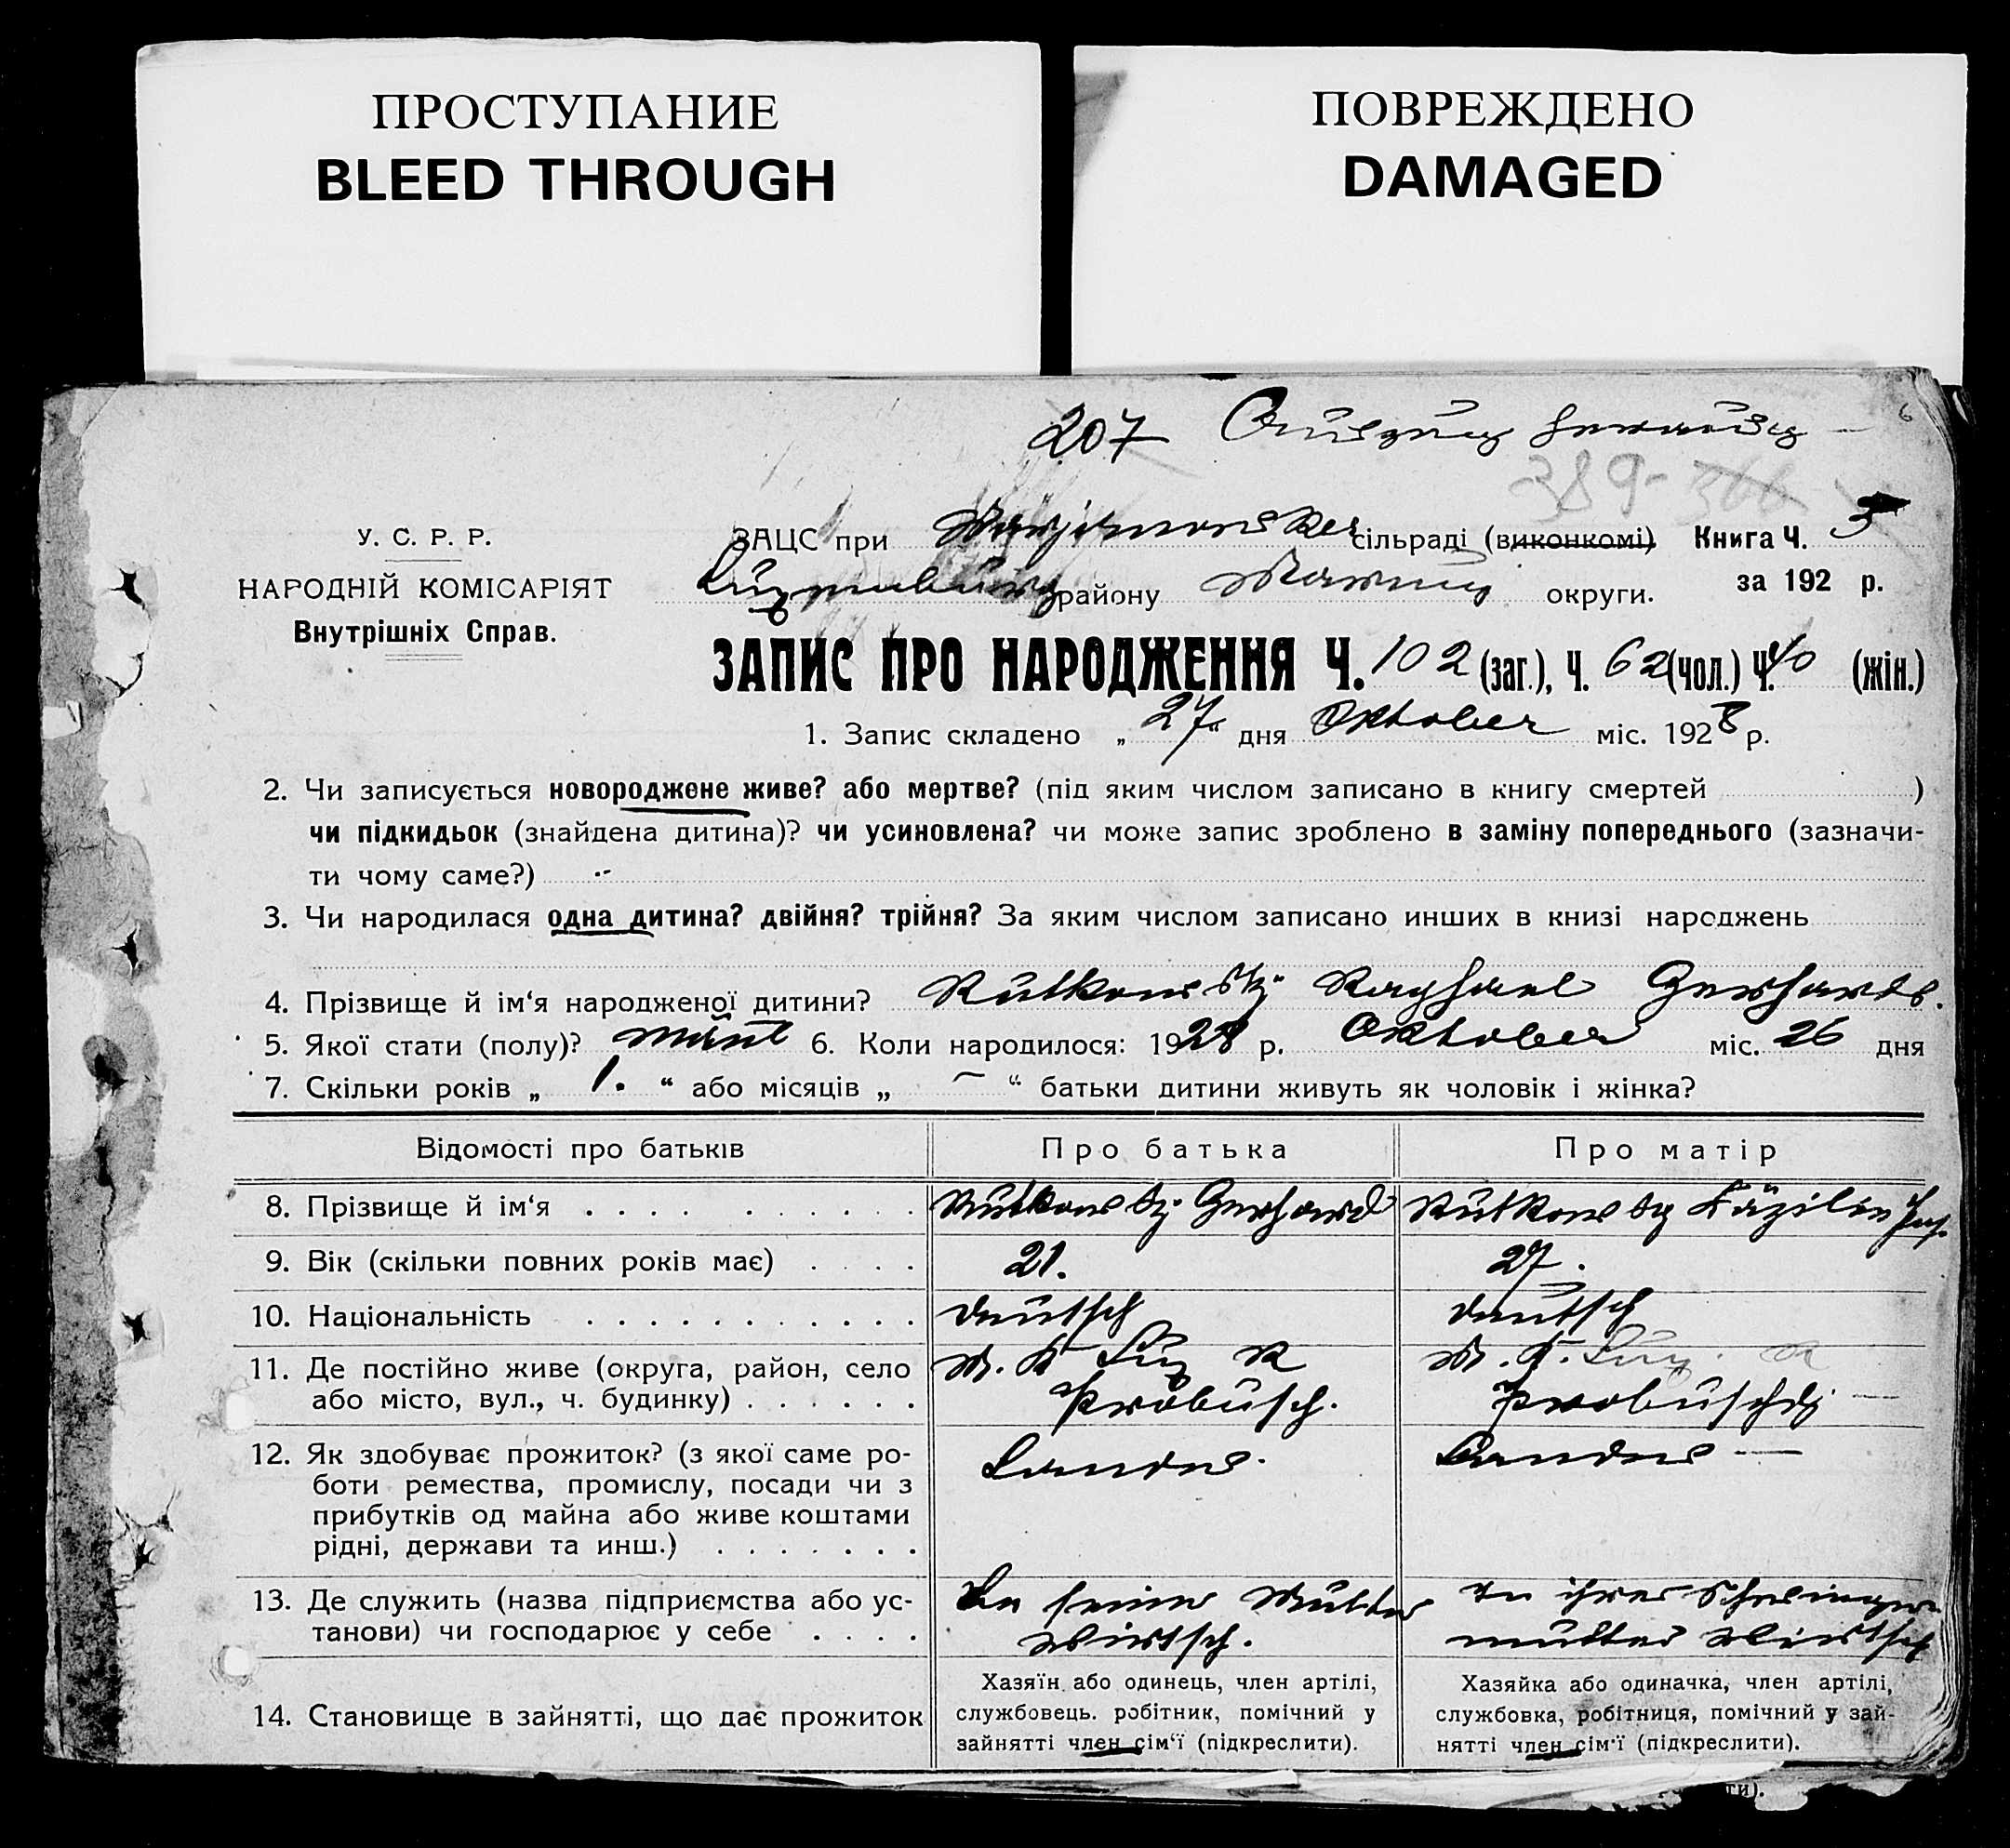 ПРОСТУПАНИЕ
BLEED THROUGH
ПОВРЕЖДЕНО
DAMAGED
207 Auszug
6
389-366
У. С. Р. Р.
НАРОДНІЙ КОМІСАРІЯТ
Внутрішніх Справ.
ЗАЦС при сільраді (виконкомі) Книга Ч. 3
Luxemburg району Mariup округи. за 192 р.
ЗАПИС ПРО НАРОДЖЕННЯ Ч. 102 (заг.), Ч. 62 (чол.) Ч. 40 (жін.)
1. Запис складено „ 27 “ дня Oktober міс. 1928 р.
2. Чи записується новороджене живе? або мертве? (під яким числом записано в книгу смертей )
чи підкидьок (знайдена дитина)? чи усиновлена? чи може запис зроблено в заміну попереднього (зазначи-
ти чому саме?)
3. Чи народилася одна дитина? двійня? трійня? За яким числом записано инших в книзі народжень
4. Прізвище й ім‘я народженої дитини? Rutkowsky Raphael Gerhards.
5. Якої стати (полу)? männl 6. Коли народилося: 1928 р. Oktober міс. 26 дня
7. Скільки років „ 1. “ або місяців „ — “ батьки дитини живуть як чоловік і жінка?
Відомості про батьків Про батька Про матір
8. Прізвище й ім‘я Rutkowsky Gerhard Rutkowsky Käzilie
9. Вік (скільки повних років має) 21. 27.
10. Національність deutsch deutsch
11. Де постійно живе (округа, район, село M. K Lux R M. K. Lux. R
або місто, вул., ч. будинку) Probusch. Probuschdf.
12. Як здобуває прожиток? (з якої саме ро-
боти ремества, промислу, посади чи з
прибутків од майна або живе коштами
рідні, держави та инш.)
13. Де служить (назва підприємства або ус- In seiner Mutter In ihrer Schwieger-
танови) чи господарює у себе Wirtsch. mutter Wirtsch
14. Становище в зайнятті, що дає прожиток
Хазяїн або одинець, член артілі,
службовець. робітник, помічний у
зайнятті член сім‘ї (підкреслити).
Хазяйка або одиначка, член артілі,
службовка, робітниця, помічний у зай-
нятті член сім‘ї (підкреслити).
ти).